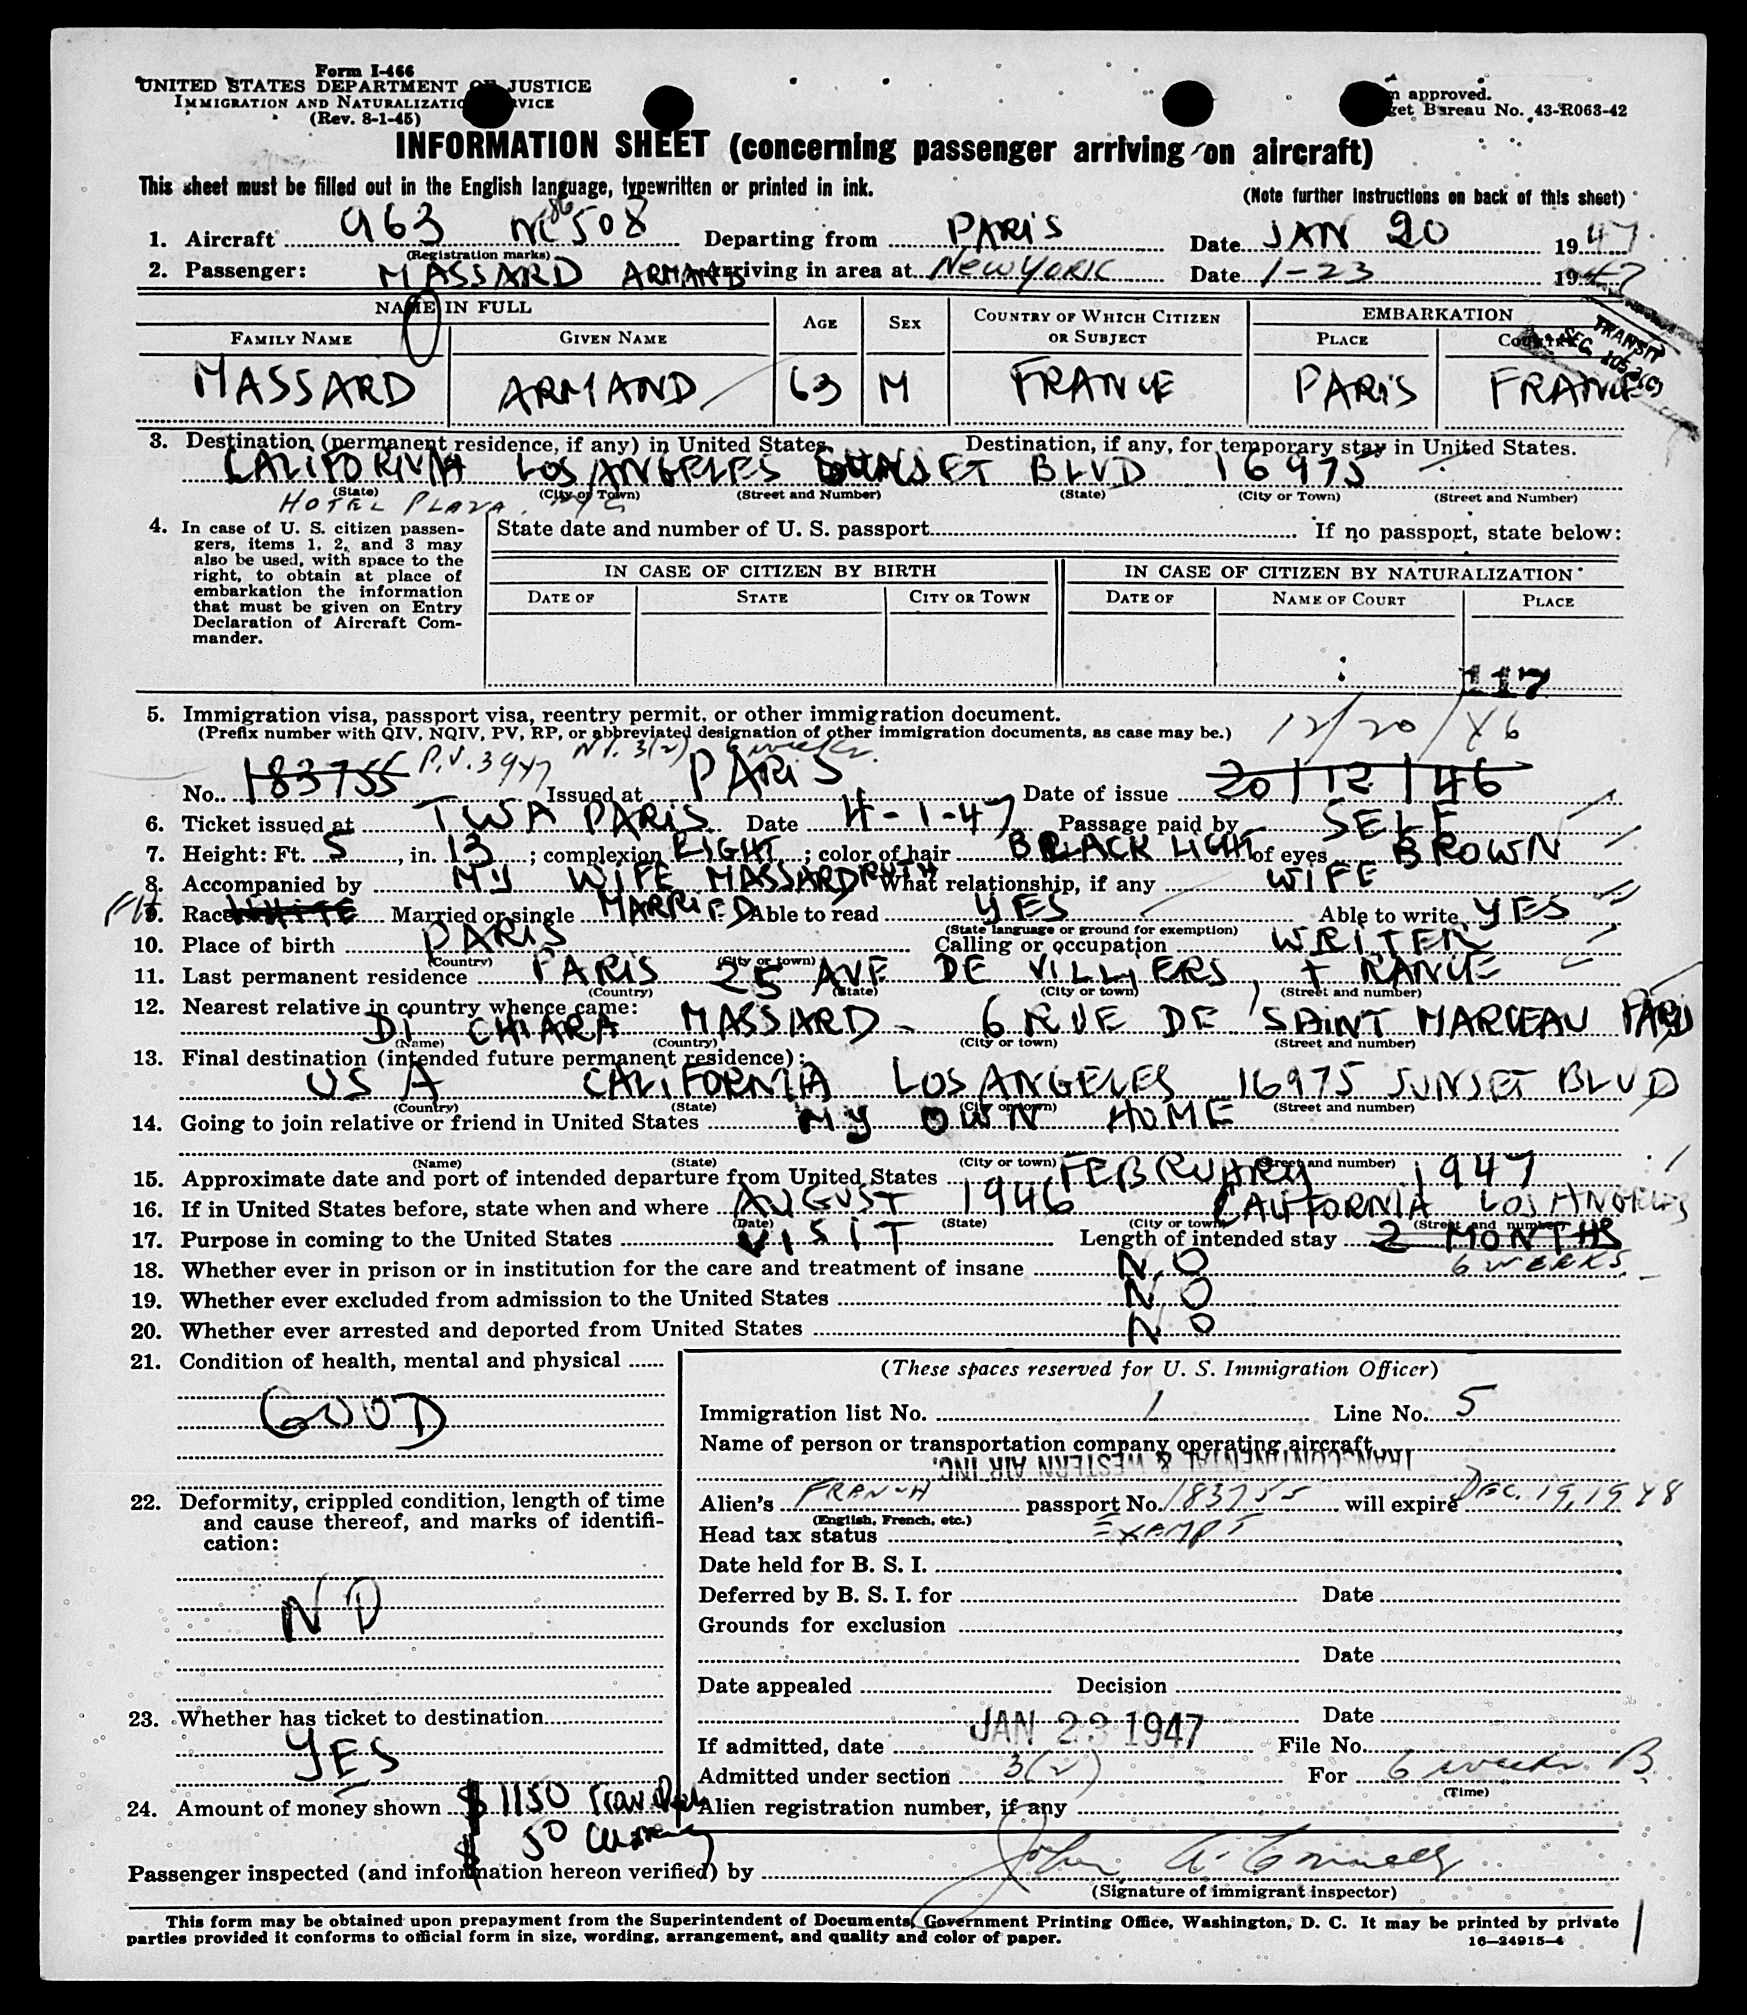 Form I-466
UNITED STATES DEPARTMENT OF JUSTICE
IMMIGRATION AND NATURALIZATION SERVICE
(Rev. 8-1-45)
approved.
Bureau No. 43-R063-42
INFORMATION SHEET (concerning passenger arriving on aircraft)
This sheet must be filled out in the English language, typewritten or printed in ink.
(Note further instructions on back of this sheet)
1. Aircraft 963 NC 86508 Departing from PARIS Date JAN 20 1947
(Registration marks)
2. Passenger: MASSARD ARMAND Arriving in area at NEW YORK Date 1-23 1947
NAME IN FULL AGE SEX COUNTRY OF WHICH CITIZEN OR SUBJECT EMBARKATION
FAMILY NAME GIVEN NAME PLACE COUNTRY
TRANSIT
SEC. 105.3(C)
MASSARD ARMAND 63 M FRANCE PARIS FRANCE
3. Destination (permanent residence, if any) in United States Destination, if any, for temporary stay in United States.
CALIFORNIA LOS ANGELES SUNSET BLVD 16975
(State) (City or Town) (Street and Number) (State) (City or Town) (Street and Number)
HOTEL PLAZA. NYC
4. In case of U. S. citizen passengers, items 1, 2, and 3 may also be used, with space to the right, to obtain at place of embarkation the information that must be given on Entry Declaration of Aircraft Commander.
State date and number of U. S. passport If no passport, state below:
IN CASE OF CITIZEN BY BIRTH IN CASE OF CITIZEN BY NATURALIZATION
DATE OF STATE CITY OR TOWN DATE OF NAME OF COURT PLACE
117
5. Immigration visa, passport visa, reentry permit, or other immigration document.
(Prefix number with QIV, NQIV, PV, RP, or abbreviated designation of other immigration documents, as case may be.)
12/20/46
P.V. 3947 3(2) 6 weeks.
No. 183755 Issued at PARIS Date of issue 20/12/46
6. Ticket issued at TWA PARIS Date 4-1-47 Passage paid by SELF
7. Height: Ft. 5, in. 13; complexion LIGHT; color of hair BLACK LIGHT of eyes BROWN
8. Accompanied by MY WIFE MASSARD RUTH What relationship, if any WIFE
9. Race WHITE Married or single MARRIED Able to read YES Able to write YES
(State language or ground for exemption)
10. Place of birth PARIS Calling or occupation WRITER
(Country) (City or town)
11. Last permanent residence PARIS 25 AVE DE VILLIERS, FRANCE
(Country) (State) (City or town) (Street and number)
12. Nearest relative in country whence came:
DI CHIARA MASSARD - 6 RUE DE SAINT MARCEAU PARIS
(Name) (Country) (City or town) (Street and number)
13. Final destination (intended future permanent residence):
USA CALIFORNIA LOS ANGELES 16975 SUNSET BLVD
(Country) (State) (City or town) (Street and number)
14. Going to join relative or friend in United States MY OWN HOME
(Name) (State) (City or town) (Street and number)
15. Approximate date and port of intended departure from United States FEBRUARY 1947
16. If in United States before, state when and where AUGUST 1946 CALIFORNIA LOS ANGELES
(Date) (State) (City or town) (Street and number)
17. Purpose in coming to the United States VISIT Length of intended stay 2 MONTHS
6 WEEKS
18. Whether ever in prison or in institution for the care and treatment of insane NO
19. Whether ever excluded from admission to the United States NO
20. Whether ever arrested and deported from United States NO
21. Condition of health, mental and physical
GOOD
22. Deformity, crippled condition, length of time and cause thereof, and marks of identification:
NO
23. Whether has ticket to destination
YES
24. Amount of money shown $1150
$ 50
(These spaces reserved for U. S. Immigration Officer)
Immigration list No. 1 Line No. 5
Name of person or transportation company operating aircraft
TRANSCONTINENTAL & WESTERN AIR INC.
Alien's FRENCH passport No. 183755 will expire DEC. 19, 1948
(English, French, etc.)
Head tax status EXEMPT
Date held for B. S. I.
Deferred by B. S. I. for Date
Grounds for exclusion
Date
Date appealed Decision
Date
If admitted, date JAN 23 1947 File No.
Admitted under section 3(2) For 6 weeks B.
(Time)
Alien registration number, if any
Passenger inspected (and information hereon verified) by John A. Connolly
(Signature of immigrant inspector)
This form may be obtained upon prepayment from the Superintendent of Documents, Government Printing Office, Washington, D. C. It may be printed by private
parties provided it conforms to official form in size, wording, arrangement, and quality and color of paper.
16—24915-4